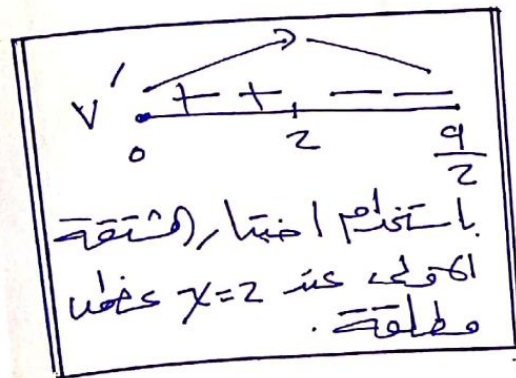 V′ + + — —
0 2 9/2
باستخدام اختبار المشتقة
الاولى عند x=2 عظمى
مطلقة.